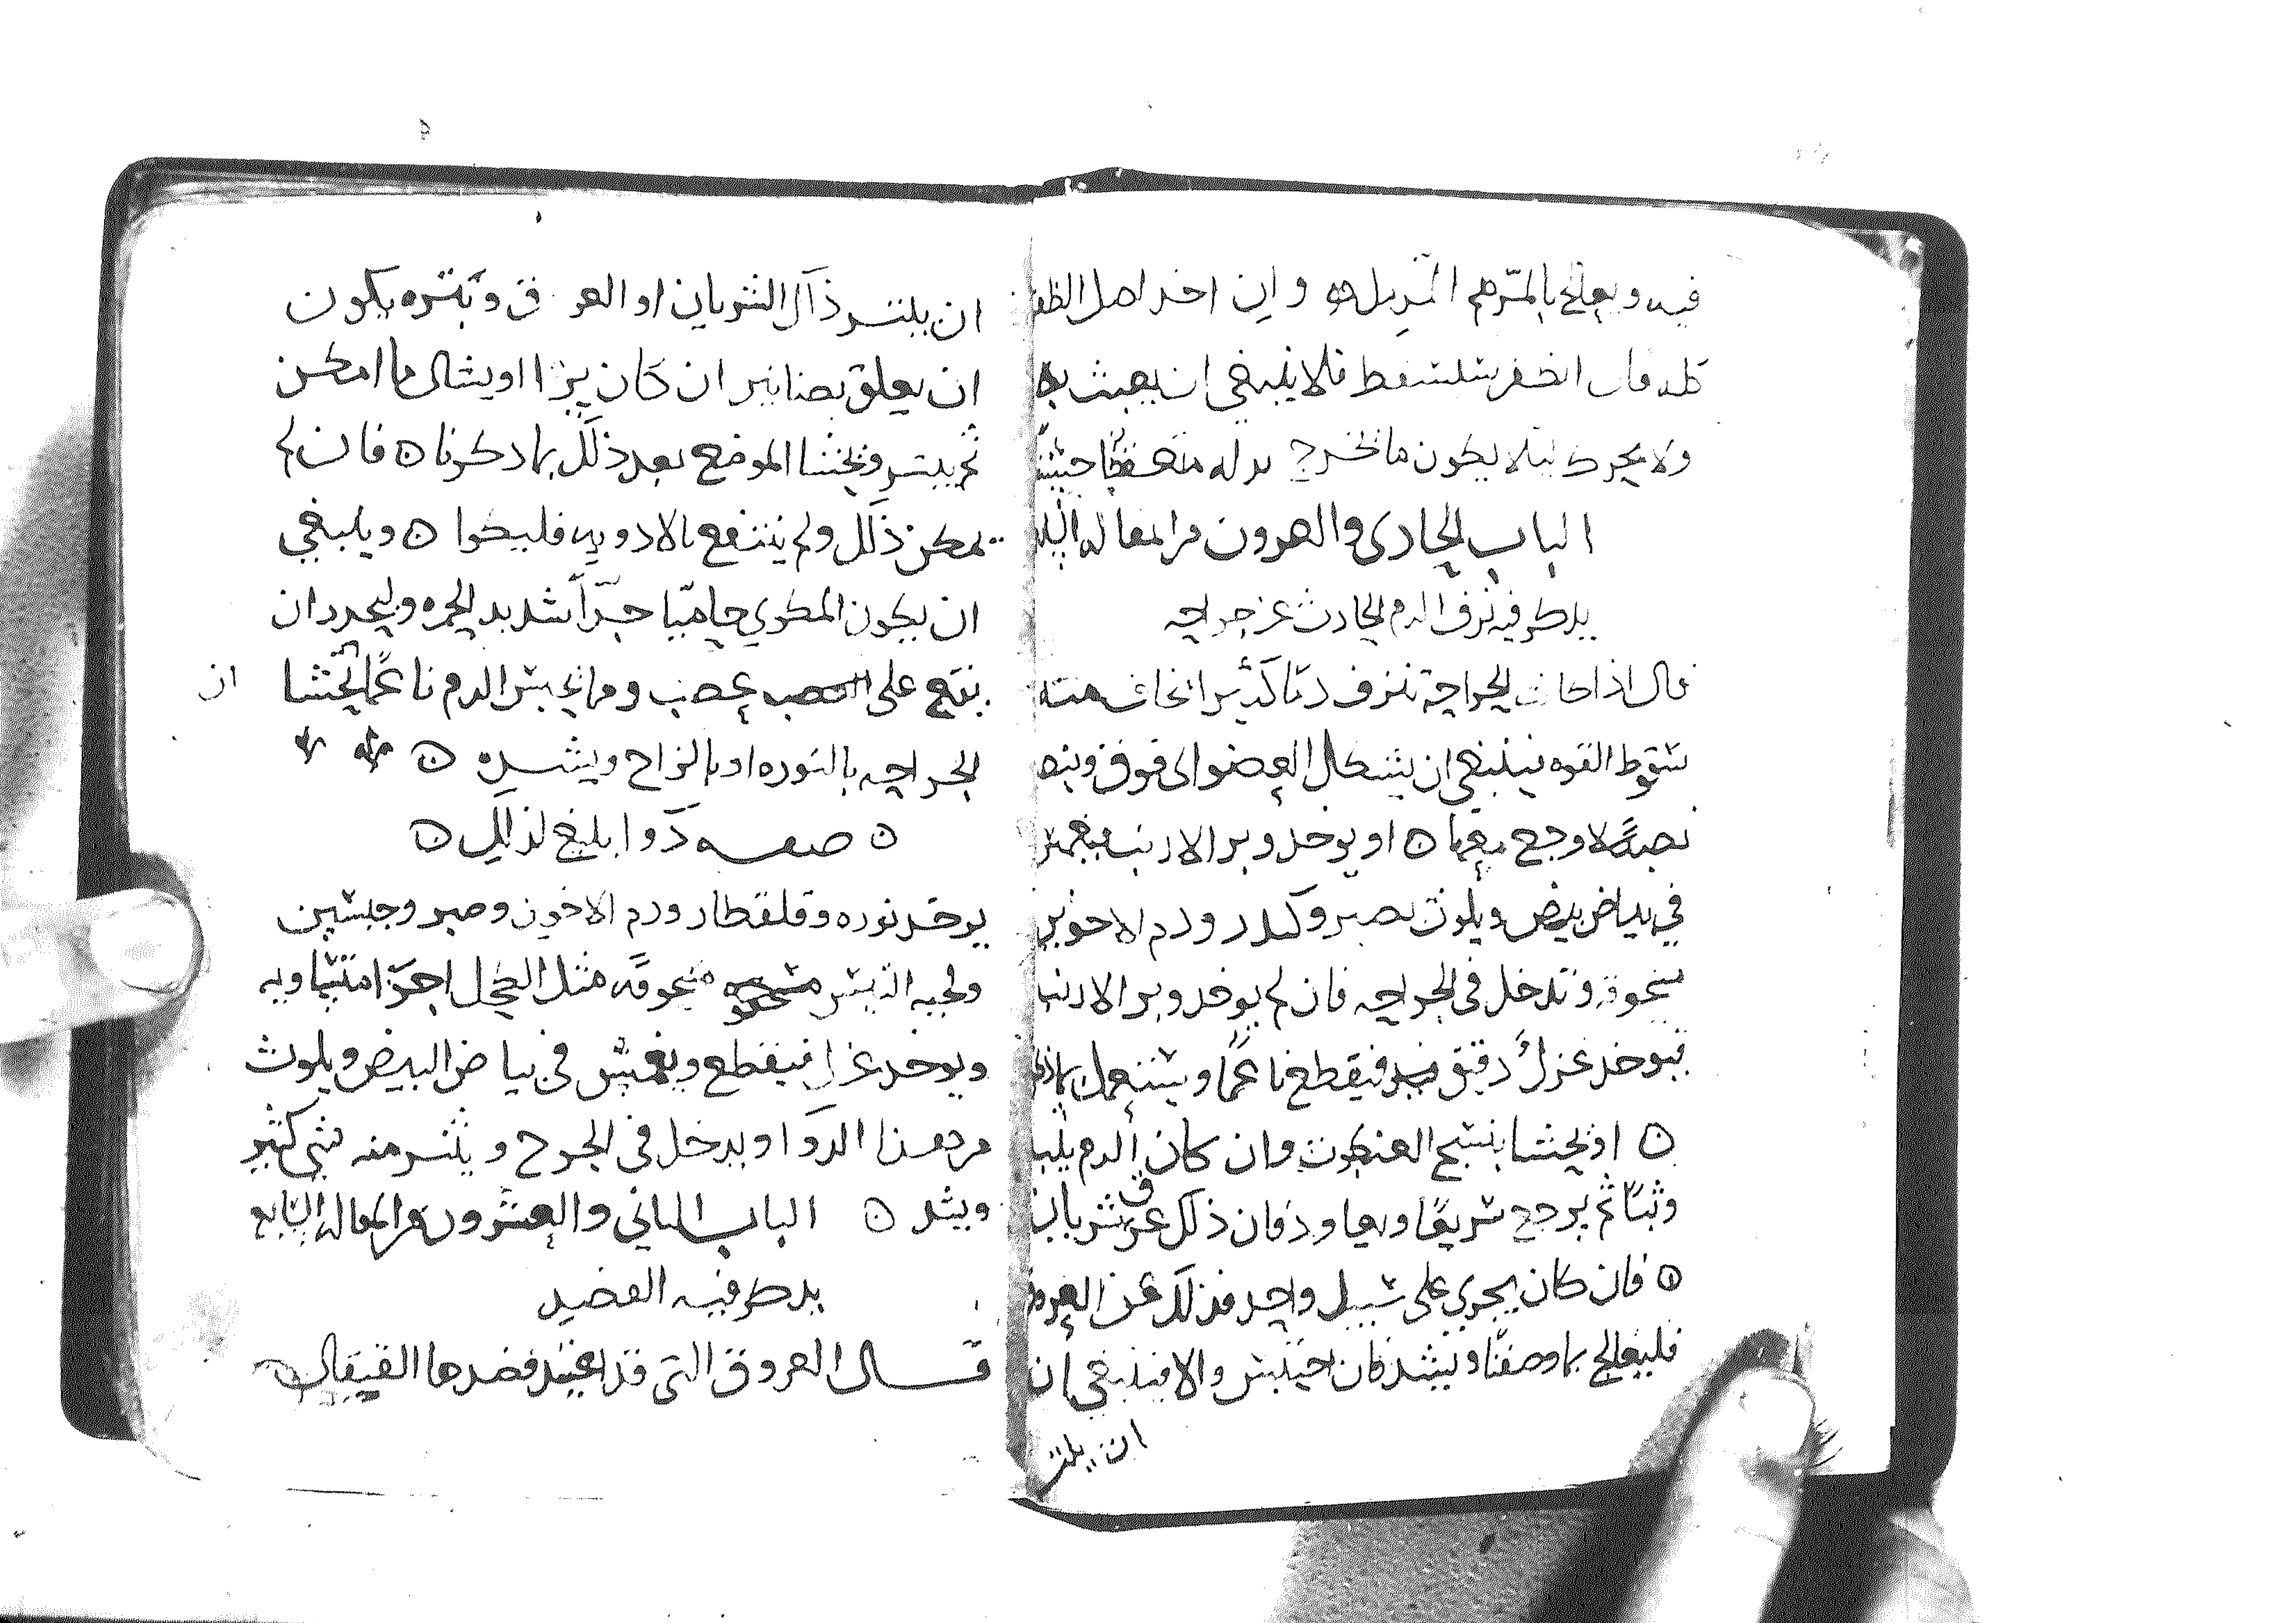 فيه ويعالج بالمرهم المزيل وان اخد اصل الظفر
كله فان الظفر سيسقط فلا ينبغي ان يعبث به
ولا يحرك ليلا يكون ما يخرج بدله متعقفا حينئذ
الباب الحادى والعشرون من المقاله
يدكر فيه نزف الدم الحادث عن جراحه
قال اذا كانت الجراحة تنزف دمًا كثيرا يخاف منه
سقوط القوه فينبغي ان يشال العضو الى فوق وينصب
نصبةً لا وجع معها ۞ او يوخد وبر الارنب فيغمس
في بياض بيض ويلوث بصبر وكندر ودم الاخوين
مسحوقة وتدخل في الجراحه فان لم يوخد وبر الارنب
فيوخد غزلٌ دقيق فيقطع ناعمًا ويستعمل بما ذكر
۞ او يحشا بنسج العنكبوت وان كان الدم
وثبًا ثم يرجع سريعًا ويعاود فان ذلك عرق شريان
۞ فان كان يجري على سبيل واحد فذلك من العروق
فليعالج بما وصفنا ويشد فان احتبس والا فينبغي ان
ان يبتر
ان يبتر ذلك الشريان او العرق وبتره يكون
ان يعلق بصنانير ان كان يرا او يشال ما امكن
ثم يبتر ويحشا الموضع بعد ذلك بما دكرنا ۞ فان لم
يمكن ذلك ولم ينتفع بالادويه فليكوا ۞ وينبغي
ان يكون المكوي حاميًا جدًا شديد الحمره وليحدر ان
يقع على عصب ومما يحبس الدم ناعمًا ان يحشا
الجراحه بالنوره او بالزاج ويشده ۞
۞ صفه دوا بليغ لذلك ۞
يوخد نوره وقلقطار ودم الاخوين وصبر وجبسين
ولحيه التيس مسحوقه مثل الكحل اجزا متساويه
ويوخد غزل فيقطع ويغمس في بياض البيض ويلوث
من هذا الدوا ويدخل في الجرح وينثر منه شي كثير
ويشد ۞ الباب الثاني والعشرون من المقاله الرابعه
يدكر فيه الفصد
قال العروق التي قد اعتيد فصدها القيفال ۞